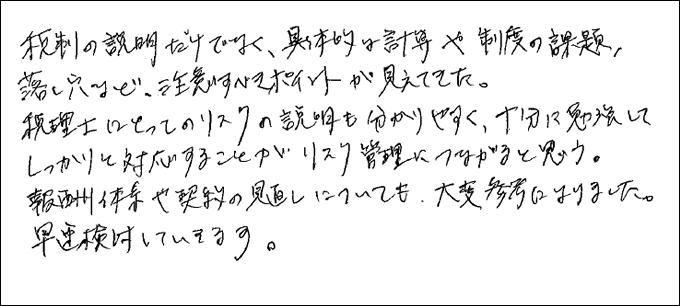 税制の説明だけでなく、具体的な計算や制度の課題、
落し穴など、注意すべきポイントが見えてきた。
税理士にとってのリスクの説明も分かりやすく、十分に勉強して
しっかりと対応することがリスク管理につながると思う。
報酬体系や契約の見直しについても、大変参考になりました。
早速検討していきます。